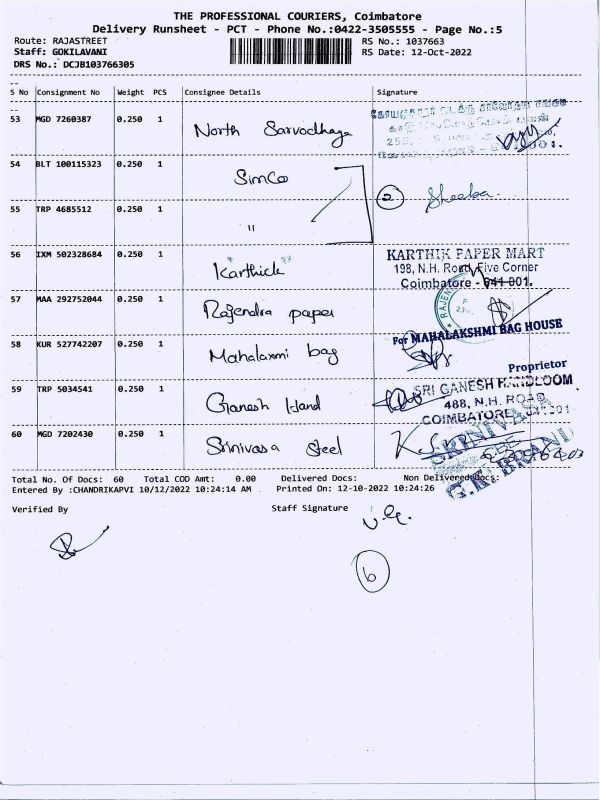 THE PROFESSIONAL COURIERS, Coimbatore
Delivery Runsheet - PCT - Phone No.:0422-3505555 - Page No.:5
Route: RAJASTREET
RS No.: 1037663
Staff: GOKILAVANI
RS Date: 12-Oct-2022
DRS No.: DCJB103766305
S No Consignment No Weight PCS Consignee Details Signature
53 MGD 7260387 0.250 1 North Sarvodhaya
54 BLT 100115323 0.250 1 SimCo
2 Sheeba.
55 TRP 4685512 0.250 1 "
56 IXM 502328684 0.250 1 Karthick
KARTHIK PAPER MART
198, N.H. Road, Five Corner
Coimbatore - 641 001.
57 MAA 292752044 0.250 1 Rajendra paper
58 KUR 527742207 0.250 1 Mahalaxmi bag
For MAHALAKSHMI BAG HOUSE
Proprietor
59 TRP 5034541 0.250 1 Ganesh Hand
SRI GANESH HANDLOOM
488, N.H. ROAD,
COIMBATORE
60 MGD 7202430 0.250 1 Srinivasa Steel
Total No. Of Docs: 60 Total COD Amt: 0.00 Delivered Docs: Non Delivered Docs:
Entered By :CHANDRIKAPVI 10/12/2022 10:24:14 AM Printed On: 12-10-2022 10:24:26
Verified By Staff Signature
6